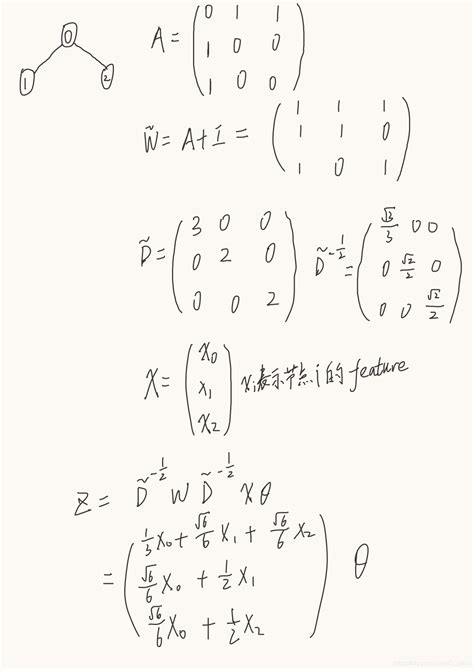 0
1 2
A = ( 0 1 1
1 0 0
1 0 0 )
W̃ = A + I = ( 1 1 1
1 1 0
1 0 1 )
D̃ = ( 3 0 0
0 2 0
0 0 2 )
D̃^{-1/2} = ( √3/3 0 0
0 √2/2 0
0 0 √2/2 )
X = ( X₀
X₁
X₂ ) Xᵢ表示节点i的feature
Z = D̃^{-1/2} W D̃^{-1/2} X θ
= ( 1/3 X₀ + √6/6 X₁ + √6/6 X₂
√6/6 X₀ + 1/2 X₁
√6/6 X₀ + 1/2 X₂ ) θ